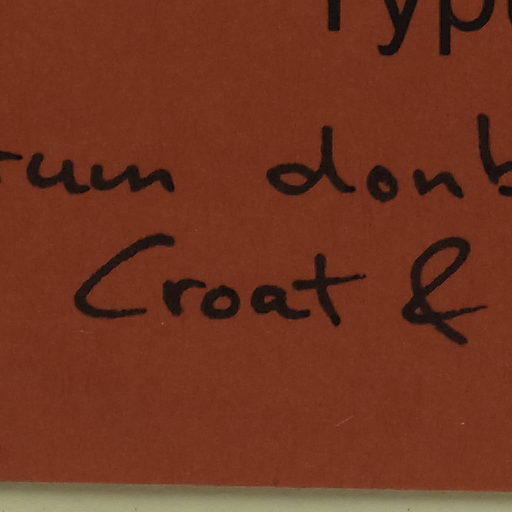 Typ
tum donb
Croat &